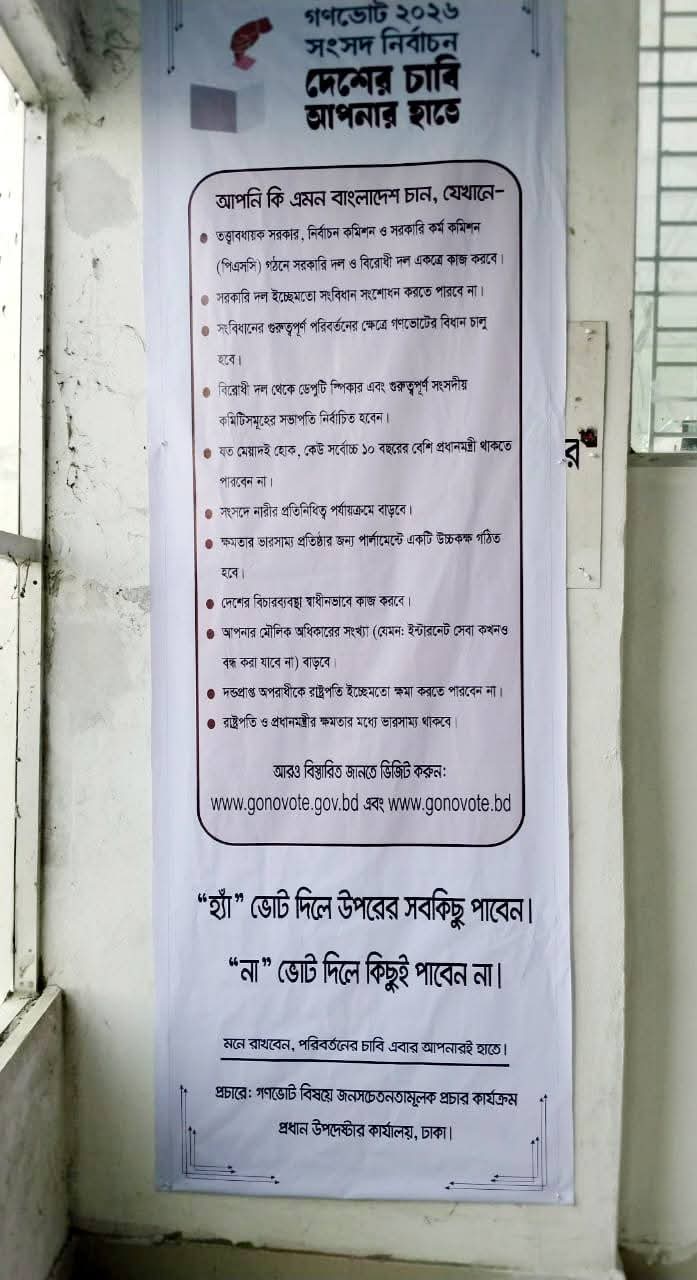 গণভোট ২০২৬
সংসদ নির্বাচন
দেশের চাবি
আপনার হাতে
আপনি কি এমন বাংলাদেশ চান, যেখানে-
• তত্ত্বাবধায়ক সরকার, নির্বাচন কমিশন ও সরকারি কর্ম কমিশন
(পিএসসি) গঠনে সরকারি দল ও বিরোধী দল একত্রে কাজ করবে।
• সরকারি দল ইচ্ছেমতো সংবিধান সংশোধন করতে পারবে না।
• সংবিধানের গুরুত্বপূর্ণ পরিবর্তনের ক্ষেত্রে গণভোটের বিধান চালু
হবে।
• বিরোধী দল থেকে ডেপুটি স্পিকার এবং গুরুত্বপূর্ণ সংসদীয়
কমিটিসমূহের সভাপতি নির্বাচিত হবেন।
• যত মেয়াদই হোক, কেউ সর্বোচ্চ ১০ বছরের বেশি প্রধানমন্ত্রী থাকতে
পারবেন না।
• সংসদে নারীর প্রতিনিধিত্ব পর্যায়ক্রমে বাড়বে।
• ক্ষমতার ভারসাম্য প্রতিষ্ঠার জন্য পার্লামেন্টে একটি উচ্চকক্ষ গঠিত
হবে।
• দেশের বিচারব্যবস্থা স্বাধীনভাবে কাজ করবে।
• আপনার মৌলিক অধিকারের সংখ্যা (যেমন: ইন্টারনেট সেবা কখনও
বন্ধ করা যাবে না) বাড়বে।
• দন্ডপ্রাপ্ত অপরাধীকে রাষ্ট্রপতি ইচ্ছেমতো ক্ষমা করতে পারবেন না।
• রাষ্ট্রপতি ও প্রধানমন্ত্রীর ক্ষমতার মধ্যে ভারসাম্য থাকবে।
আরও বিস্তারিত জানতে ভিজিট করুন:
www.gonovote.gov.bd এবং www.gonovote.bd
“হ্যাঁ” ভোট দিলে উপরের সবকিছু পাবেন।
“না” ভোট দিলে কিছুই পাবেন না।
মনে রাখবেন, পরিবর্তনের চাবি এবার আপনারই হাতে।
প্রচারে: গণভোট বিষয়ে জনসচেতনতামূলক প্রচার কার্যক্রম
প্রধান উপদেষ্টার কার্যালয়, ঢাকা।
র